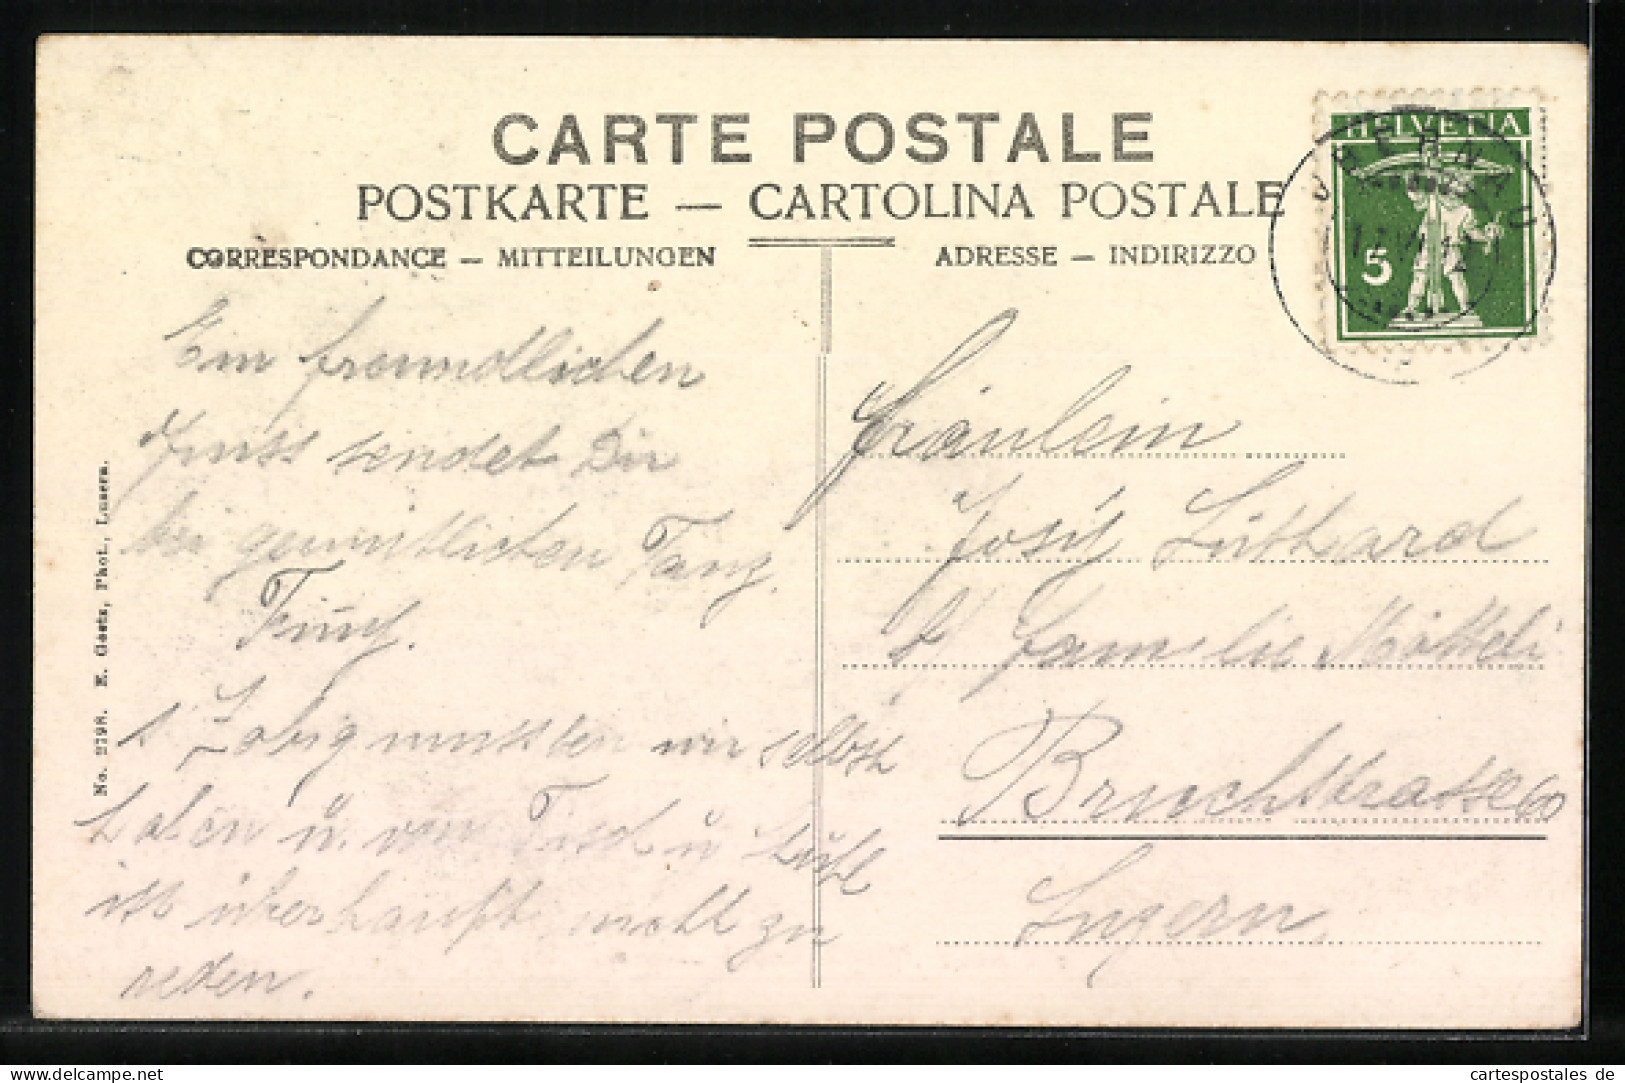 CARTE POSTALE
POSTKARTE — CARTOLINA POSTALE
CORRESPONDANCE — MITTEILUNGEN
ADRESSE — INDIRIZZO
HELVETIA
5
Ein freundlichen
Gruss sendet Dir
bei gemütlichen Tanz.
Zobig mussten wir selbst
haben u. von Tisch u
ist überhaupt nicht zu
reden.
Fräulein
Josy Lüthard
Familie Mötteli
Bruchstrasse 60
Luzern
No. 2798. E. Goetz, Phot., Luzern.
cartespostales de